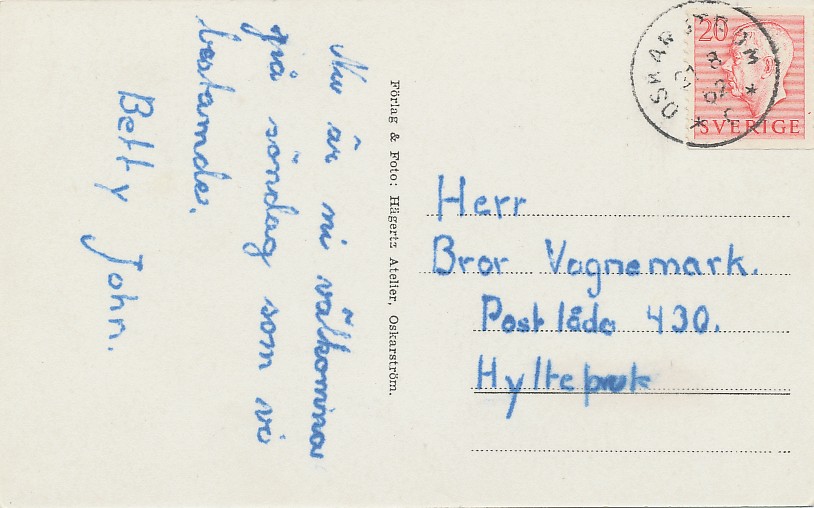 Nu är ni välkomna
på söndag som vi
bestämde.
Betty John.
Förlag & Foto: Hägertz Atelier, Oskarström.
OSKARSTRÖM
20
SVERIGE
Herr
Bror Vagnemark.
Postlåda 430.
Hyltebruk